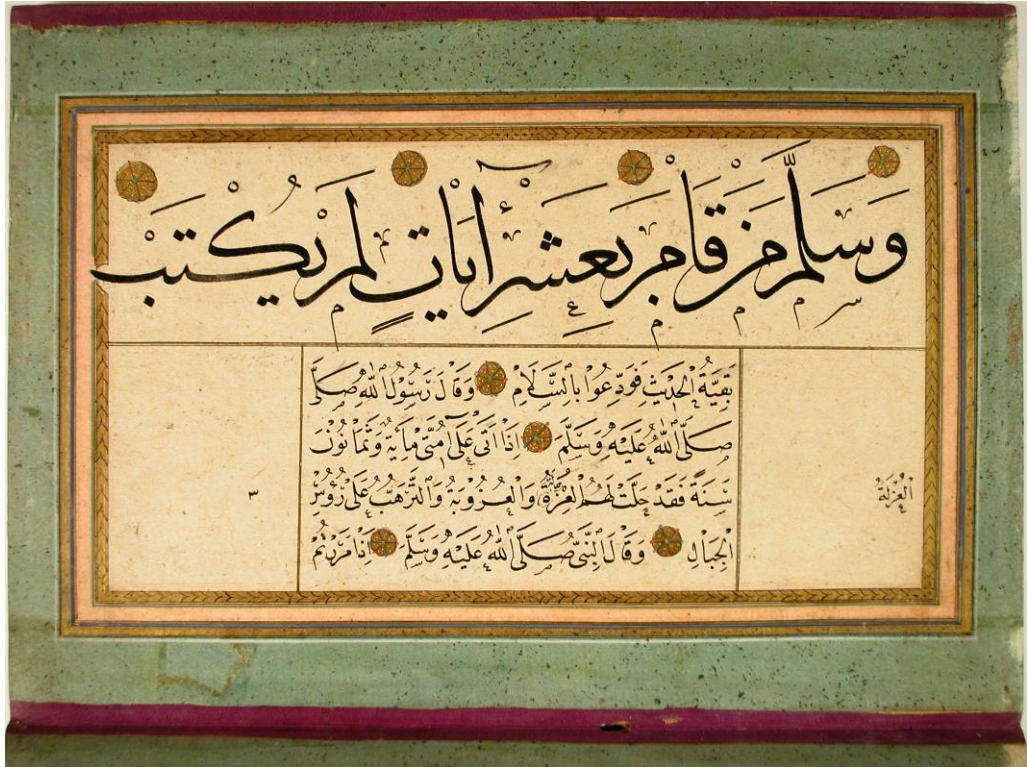 وَسَلَّمَ مَنْ قَامَ بِعَشْرِ آيَاتٍ لَمْ يُكْتَبْ
بَقِيَّةُ الْحَدِيثِ فَوَدِّعُوا بِالسَّلَامْ وَقَالَ رَسُولُ اللهِ صَلَّى
صَلَّى اللهُ عَلَيْهِ وَسَلَّمَ اِذَا اَتَى عَلَى اُمَّتِى مِأَيَةٌ وَثَمَانُونَ
سَنَةً فَقَدْ حَلَّتْ لَهُمُ الْعُزْلَةُ وَالْعُزُوبَةُ وَالتَّرَهُّبُ عَلَى رُؤُسِ
الْجِبَالِ وَقَالَ النَّبِىُّ صَلَّى اللهُ عَلَيْهِ وَسَلَّمَ اِذَا مَرَرْتُمْ
الْعُزْلَةُ
٣